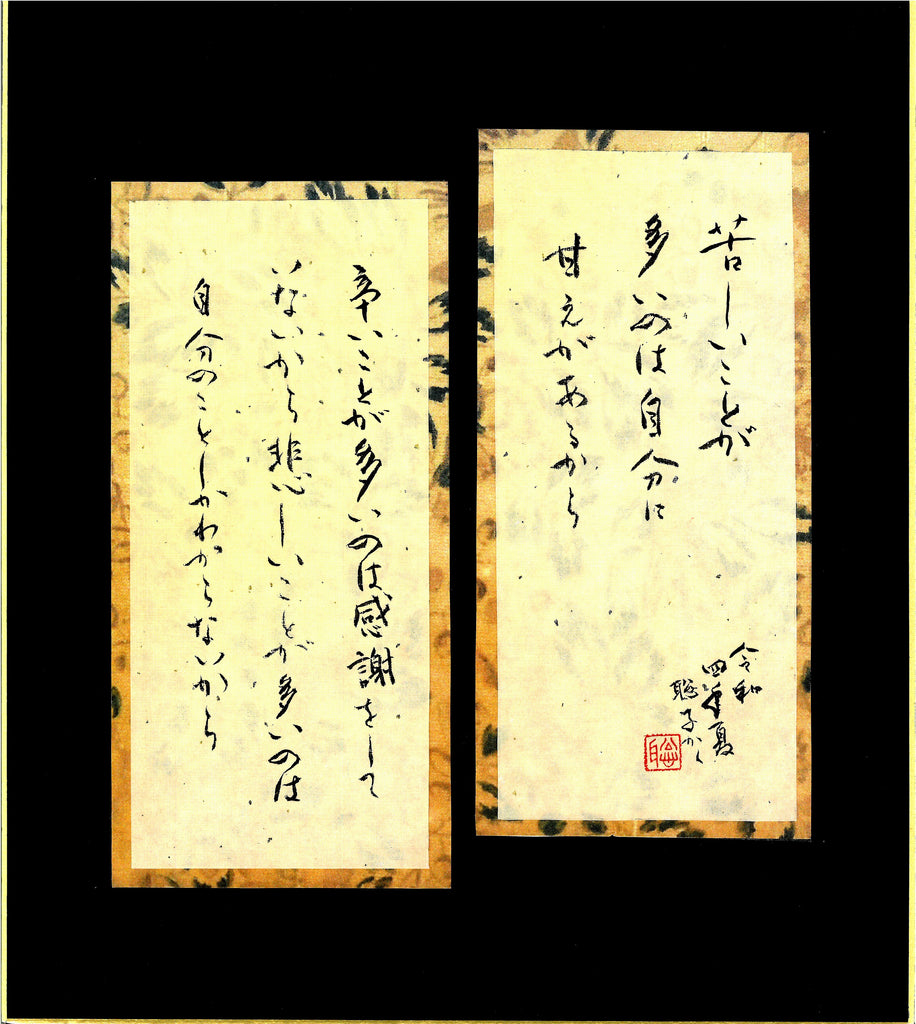 苦しいことが
多いのは自分に
甘えがあるから
令和
四年夏
聡子かく
聡
辛いことが多いのは感謝をして
いないから悲しいことが多いのは
自分のことしかわからないから